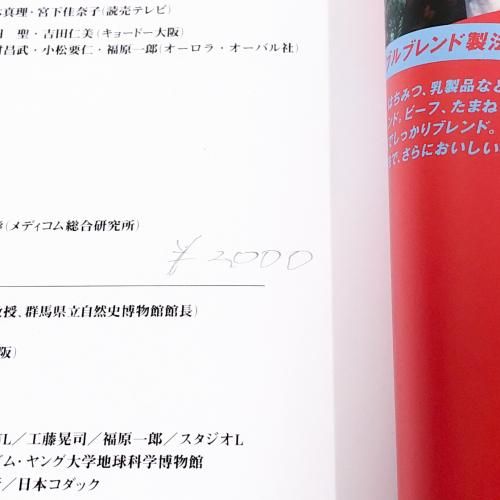 真理・宮下佳奈子(読売テレビ)
聖・吉田仁美(キョードー大阪)
昌武・小松要仁・福原一郎(オーロラ・オーバル社)
(メディコム総合研究所)
¥2000
授、群馬県立自然史博物館館長)
阪)
L／工藤晃司／福原一郎／スタジオL
ム・ヤング大学地球科学博物館
／日本コダック
ルブレンド製法
はちみつ、乳製品など
ンド。ビーフ、たまね
でしっかりブレンド。
で、さらにおいしい